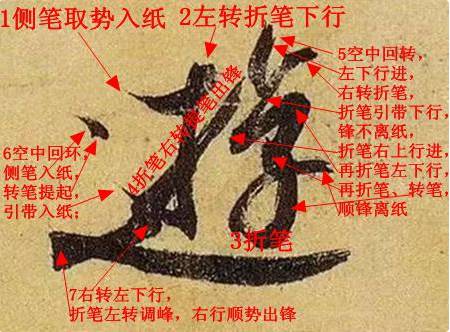 1侧笔取势入纸
2左转折笔下行
遊
3折笔
4折笔右转提笔出锋
5空中回转，
左下行进，
右转折笔，
折笔引带下行，
锋不离纸，
折笔右上行进，
再折笔左下行，
再折笔、转笔，
顺锋离纸
6空中回环，
侧笔入纸，
转笔提起，
引带入纸；
7右转左下行，
折笔左转调峰，右行顺势出锋